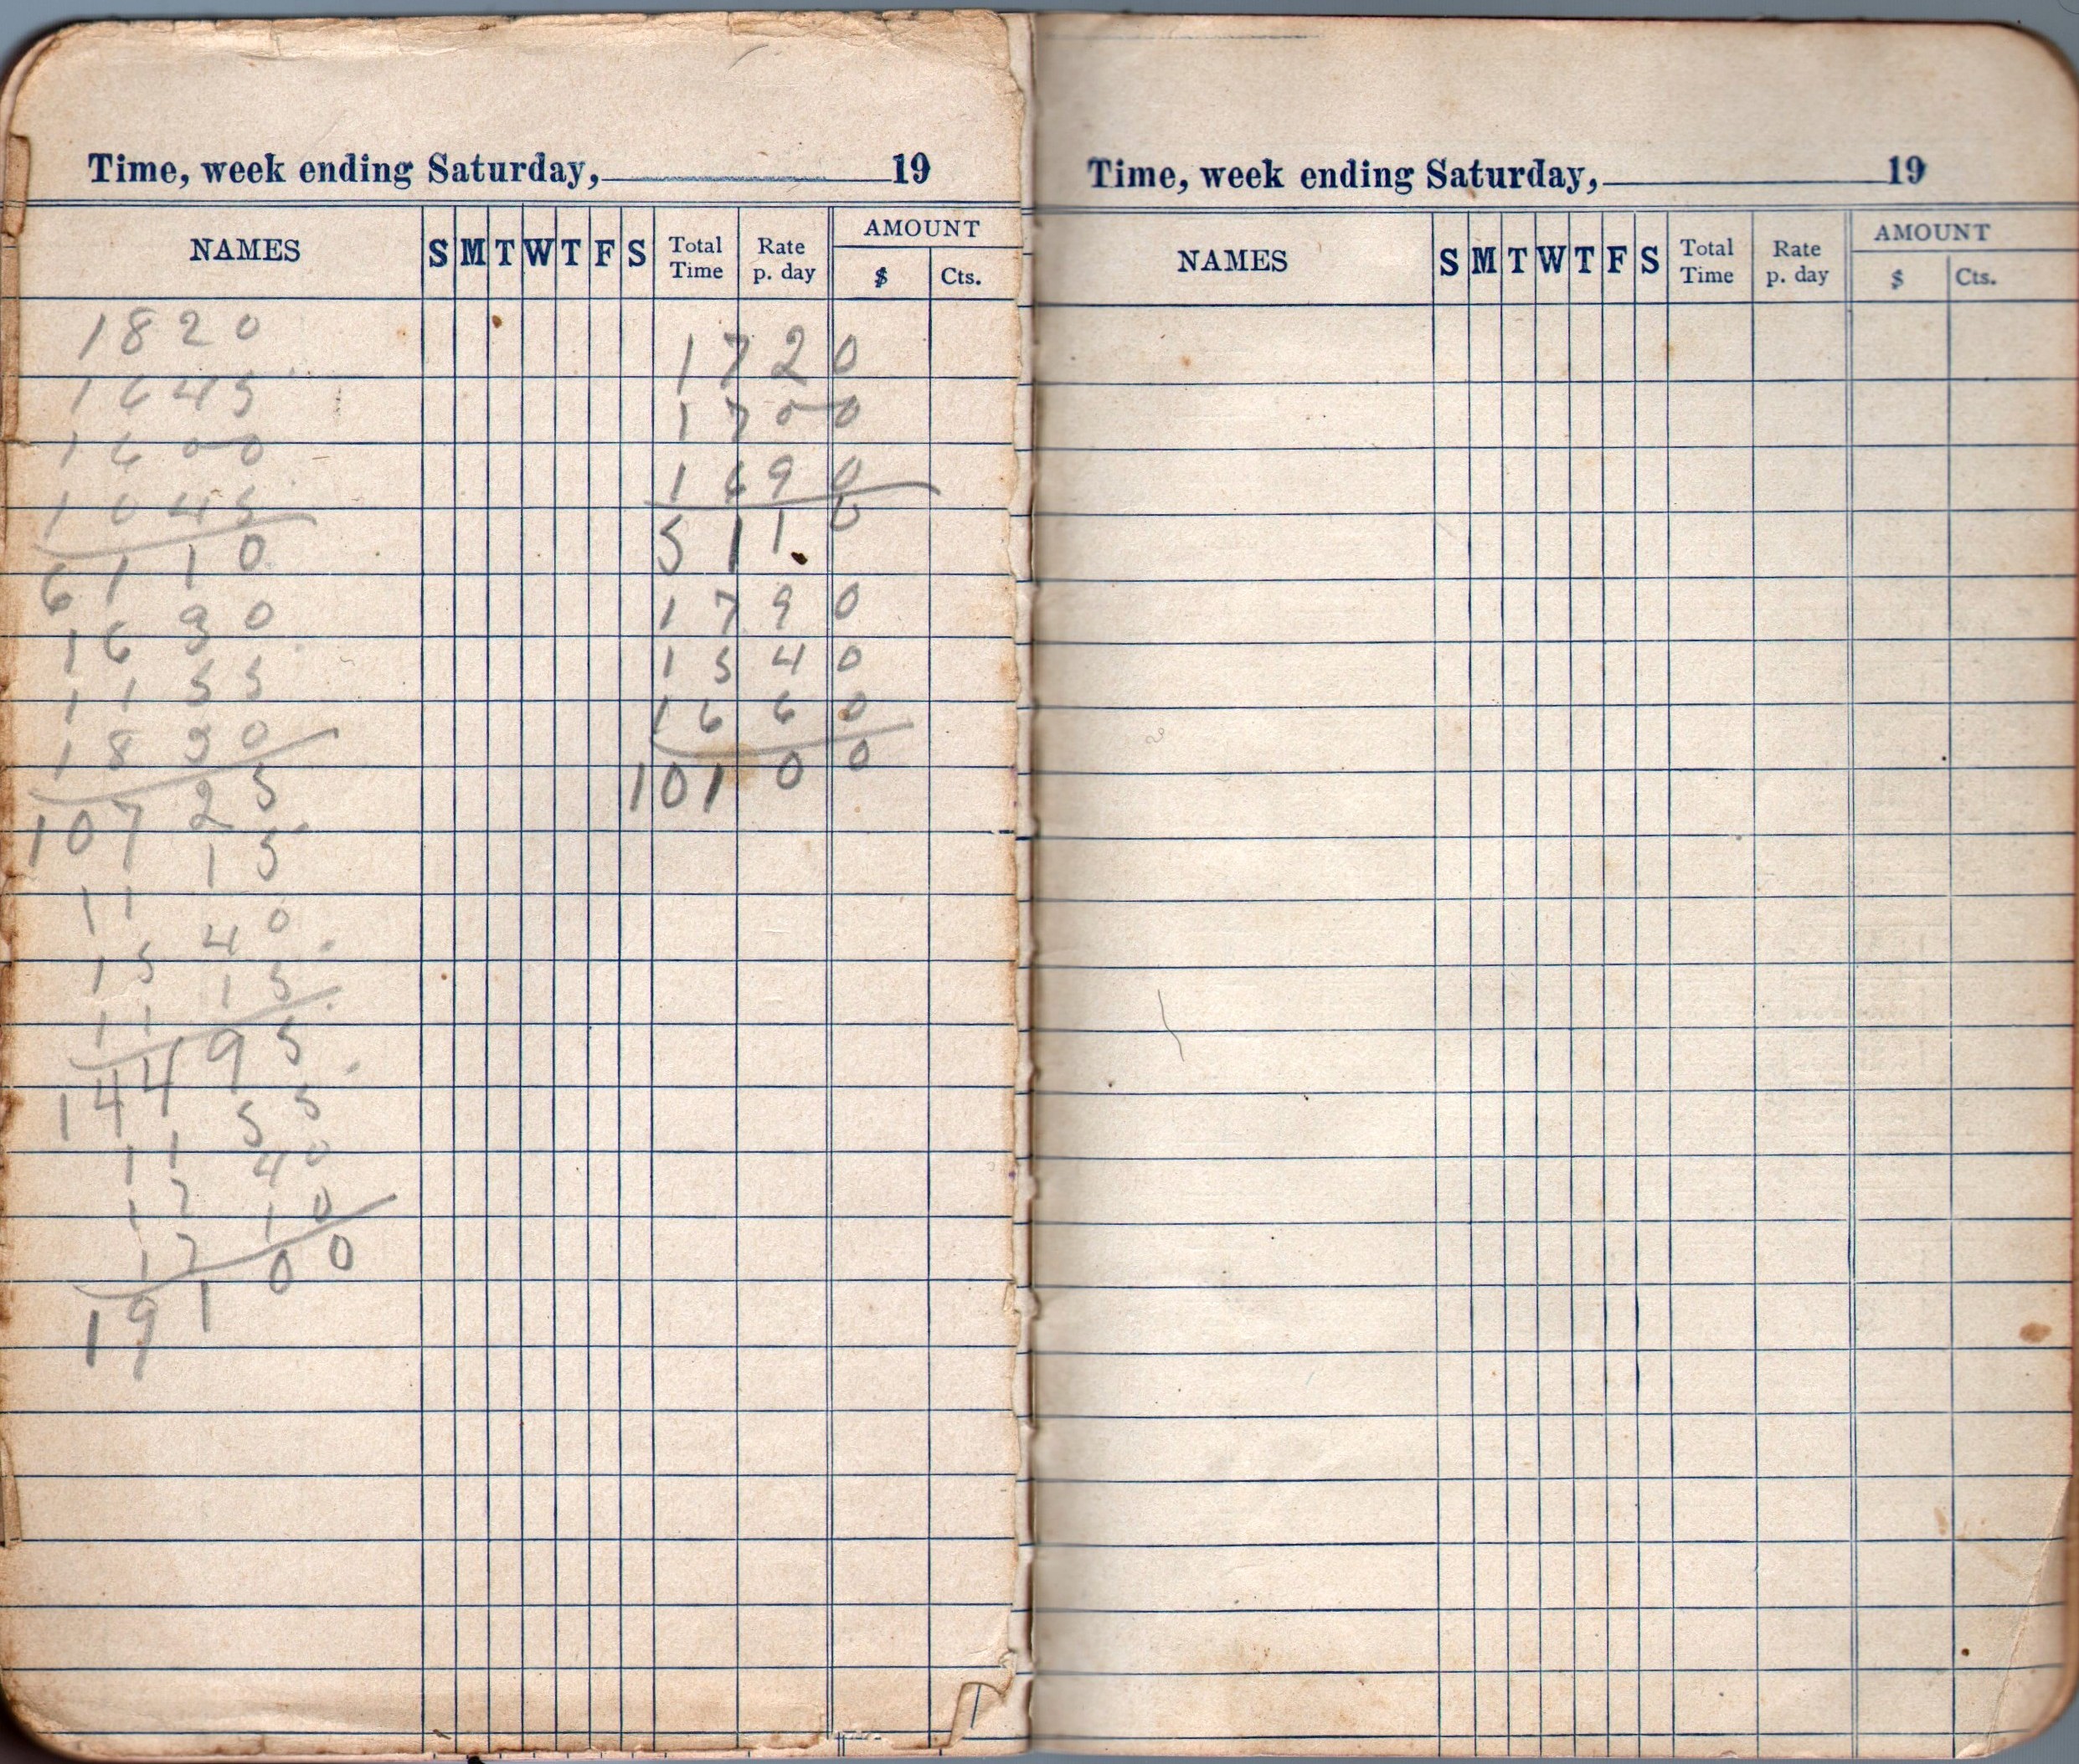 Time, week ending Saturday, 19
NAMES S M T W T F S Total Time Rate p. day AMOUNT $ Cts.
1820
1645
1600
1045
6110
1630
1155
1830
10725
1115
1540
1115
14495
1155
1740
1710
19100
1720
1700
1690
5110
1790
1540
1660
10100
Time, week ending Saturday, 19
NAMES S M T W T F S Total Time Rate p. day AMOUNT $ Cts.